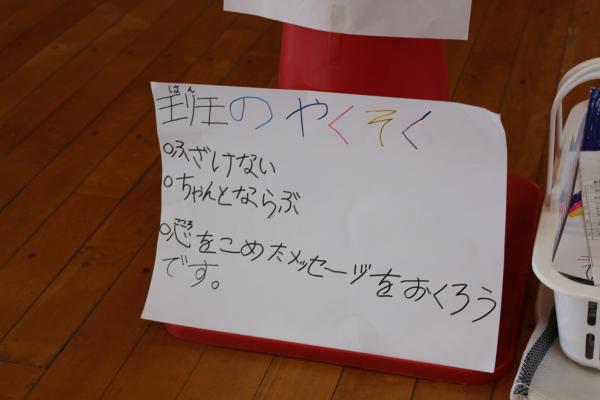 班のやくそく
はん
○ふざけない
○ちゃんとならぶ
○心をこめたメッセージをおくろう
です。